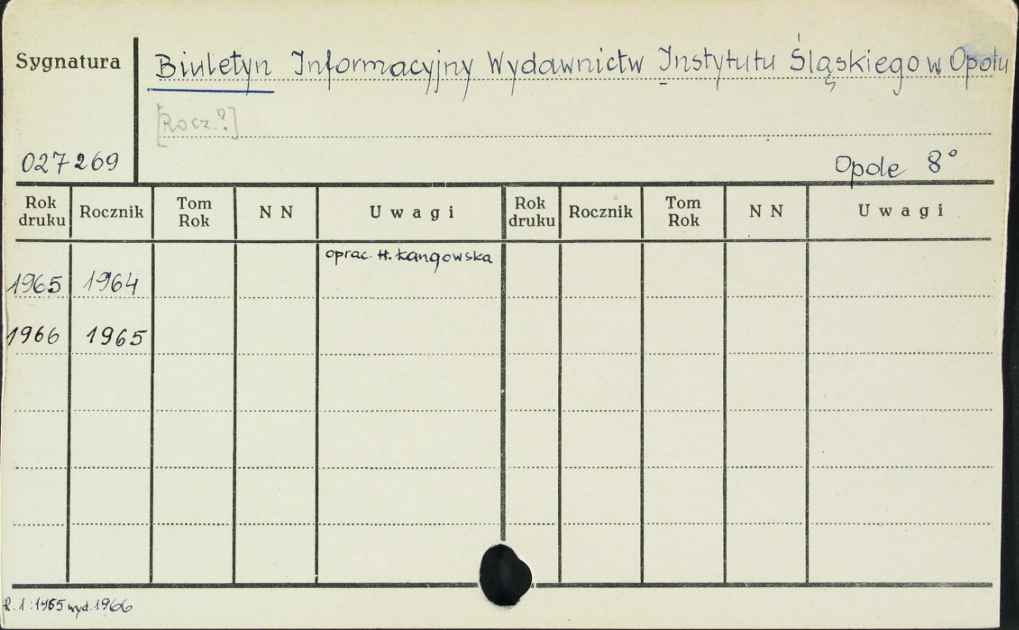 Sygnatura
Biuletyn Informacyjny Wydawnictw Instytutu Śląskiego w Opolu
[Rocz.?]
027269
Opole 8°
Rok druku Rocznik Tom Rok N N Uwagi Rok druku Rocznik Tom Rok N N Uwagi
oprac. H. Łangowska
1965 1964
1966 1965
R. 1: 1965 wyd. 1966